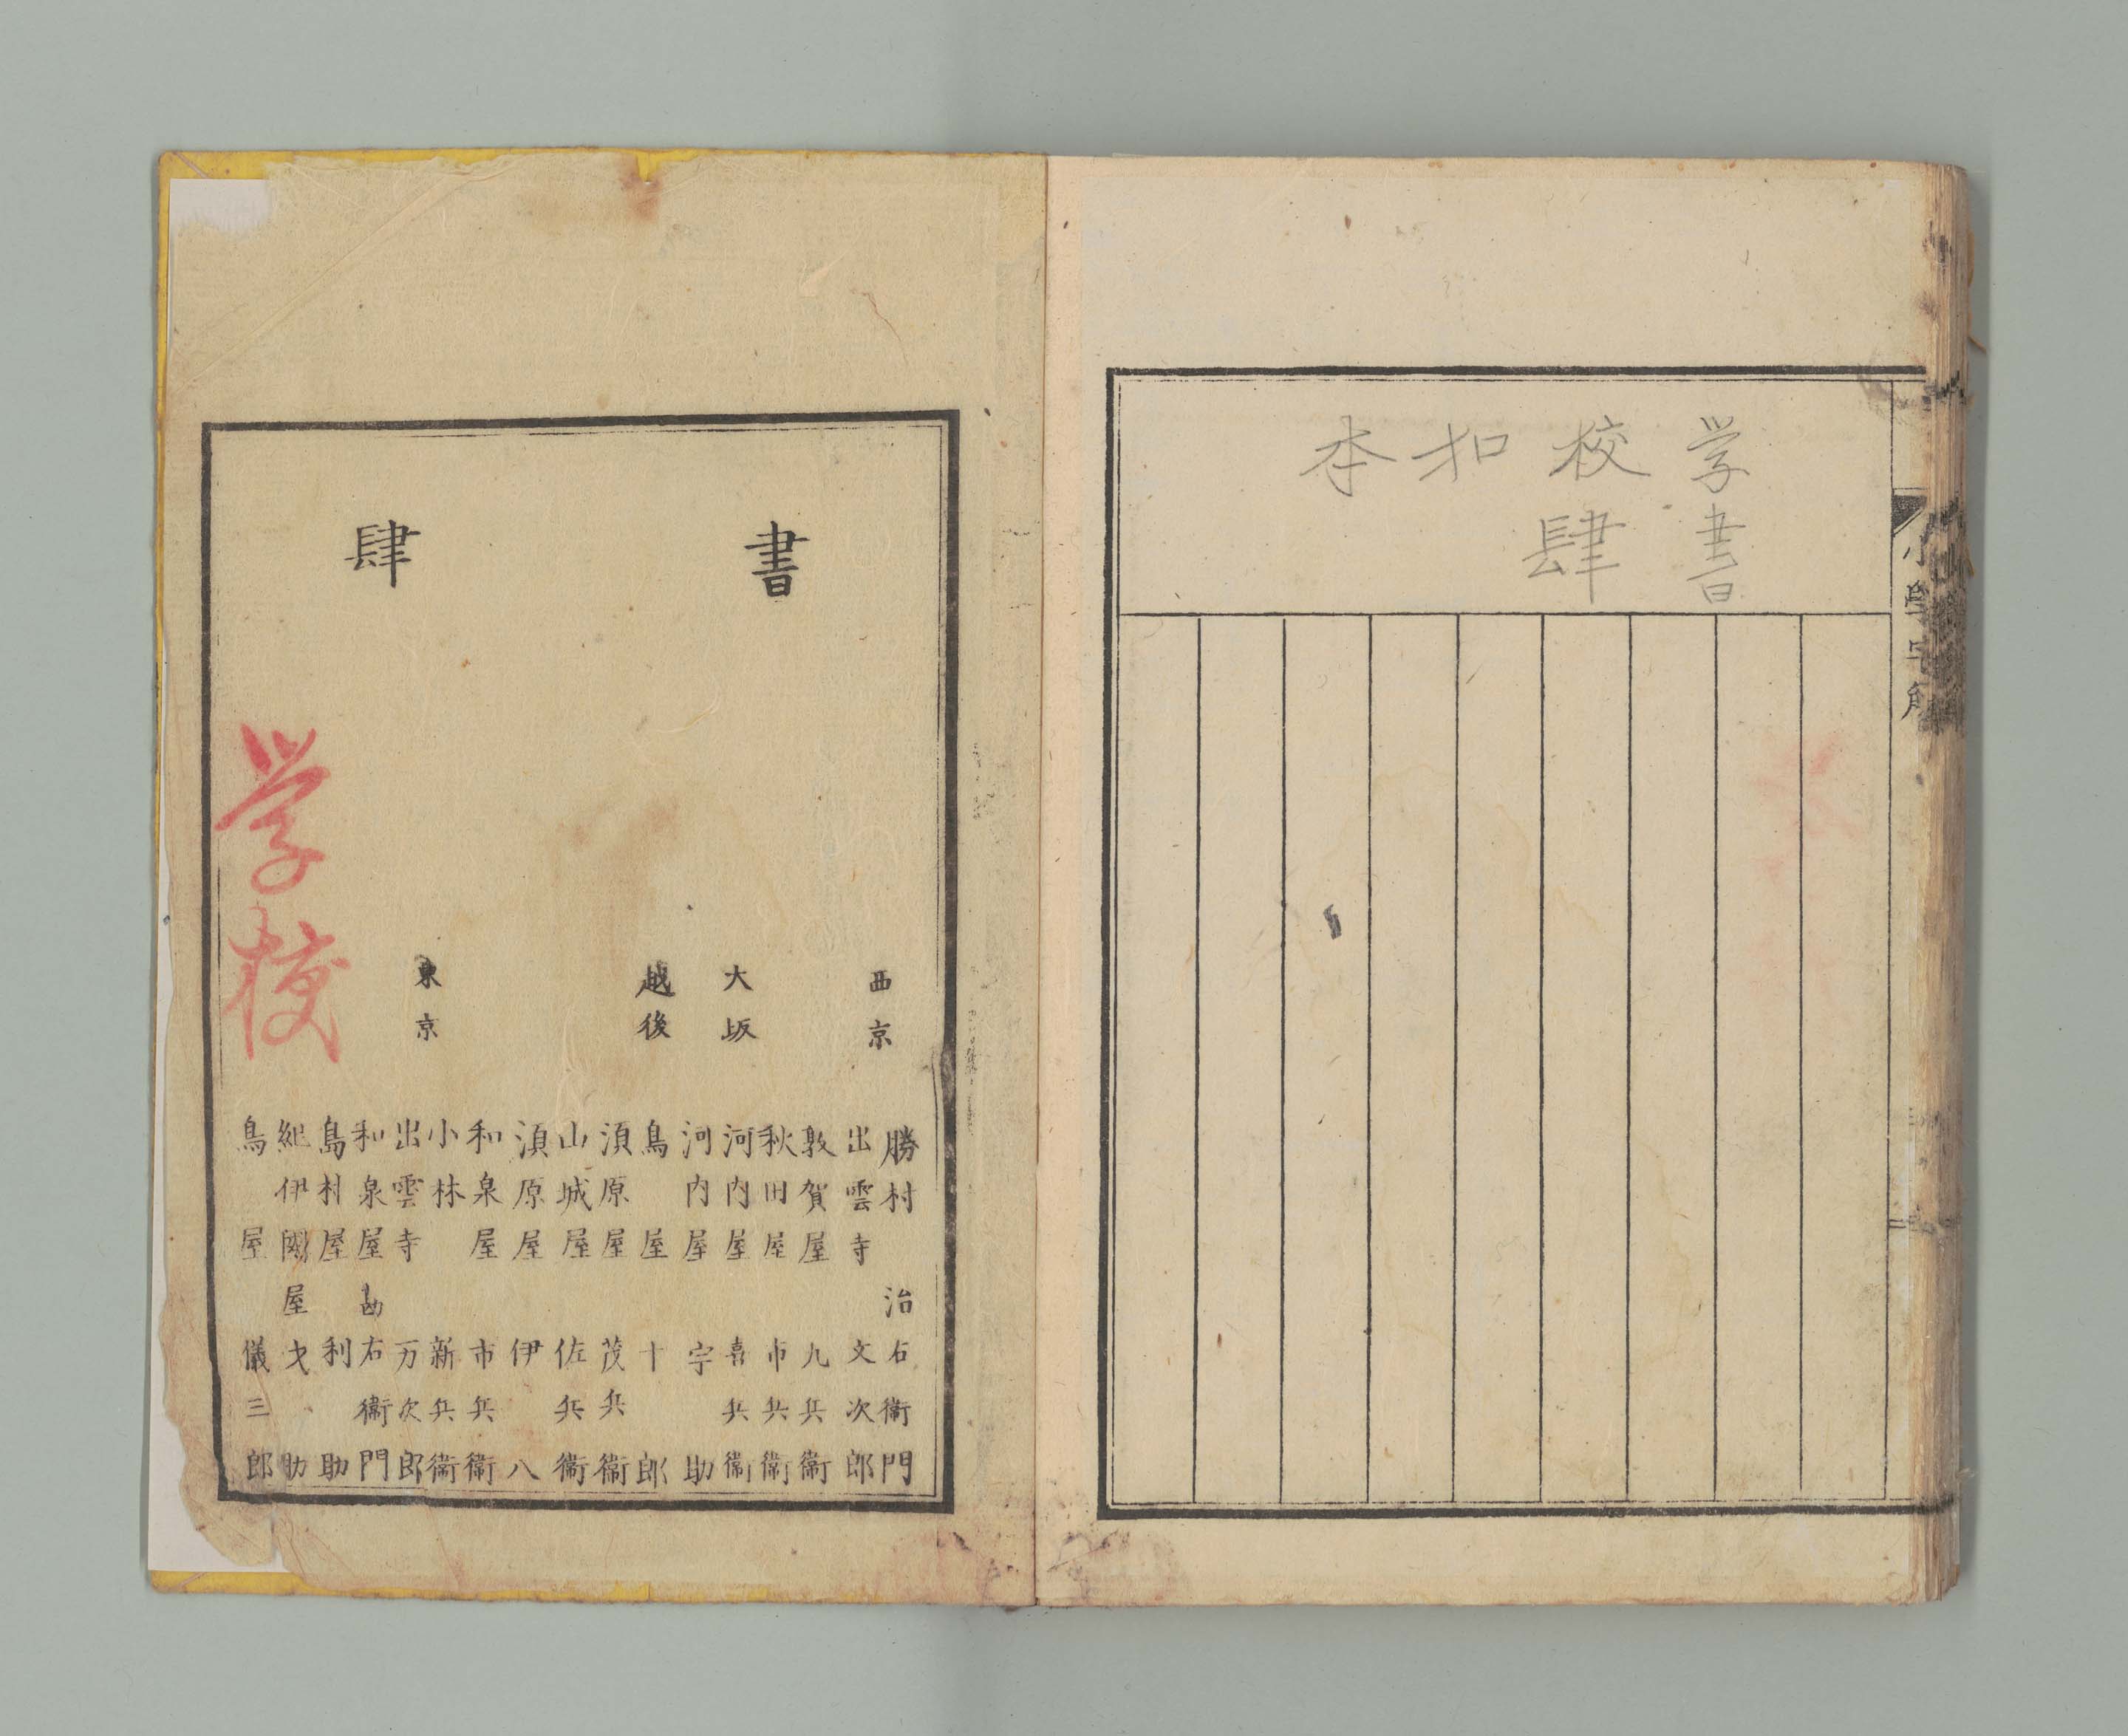 学校扣本
書肆
書肆
西京
勝村治右衛門
出雲寺文次郎
敦賀屋九兵衛
大坂
秋田屋市兵衛
河内屋喜兵衛
河内屋宇助
越後
鳥屋十郎
須原屋茂兵衛
山城屋佐兵衛
須原屋伊八
和泉屋市兵衛
東京
小林新兵衛
出雲寺万次郎
和泉屋勘右衛門
島村屋利助
紀伊國屋
鳥屋儀三郎
学校